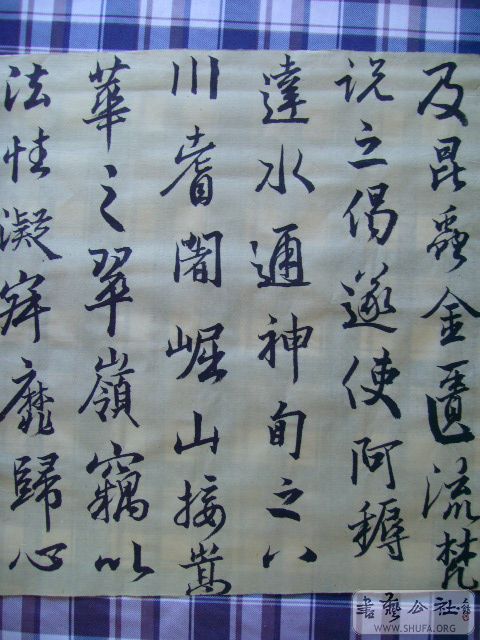 及昆蟲金匱流梵
说之偈遂使阿耨
達水通神甸之八
川耆闍崛山接嵩
華之翠嶺竊以
法性凝寂靡歸心
書藝公社
WWW.SHUFA.ORG